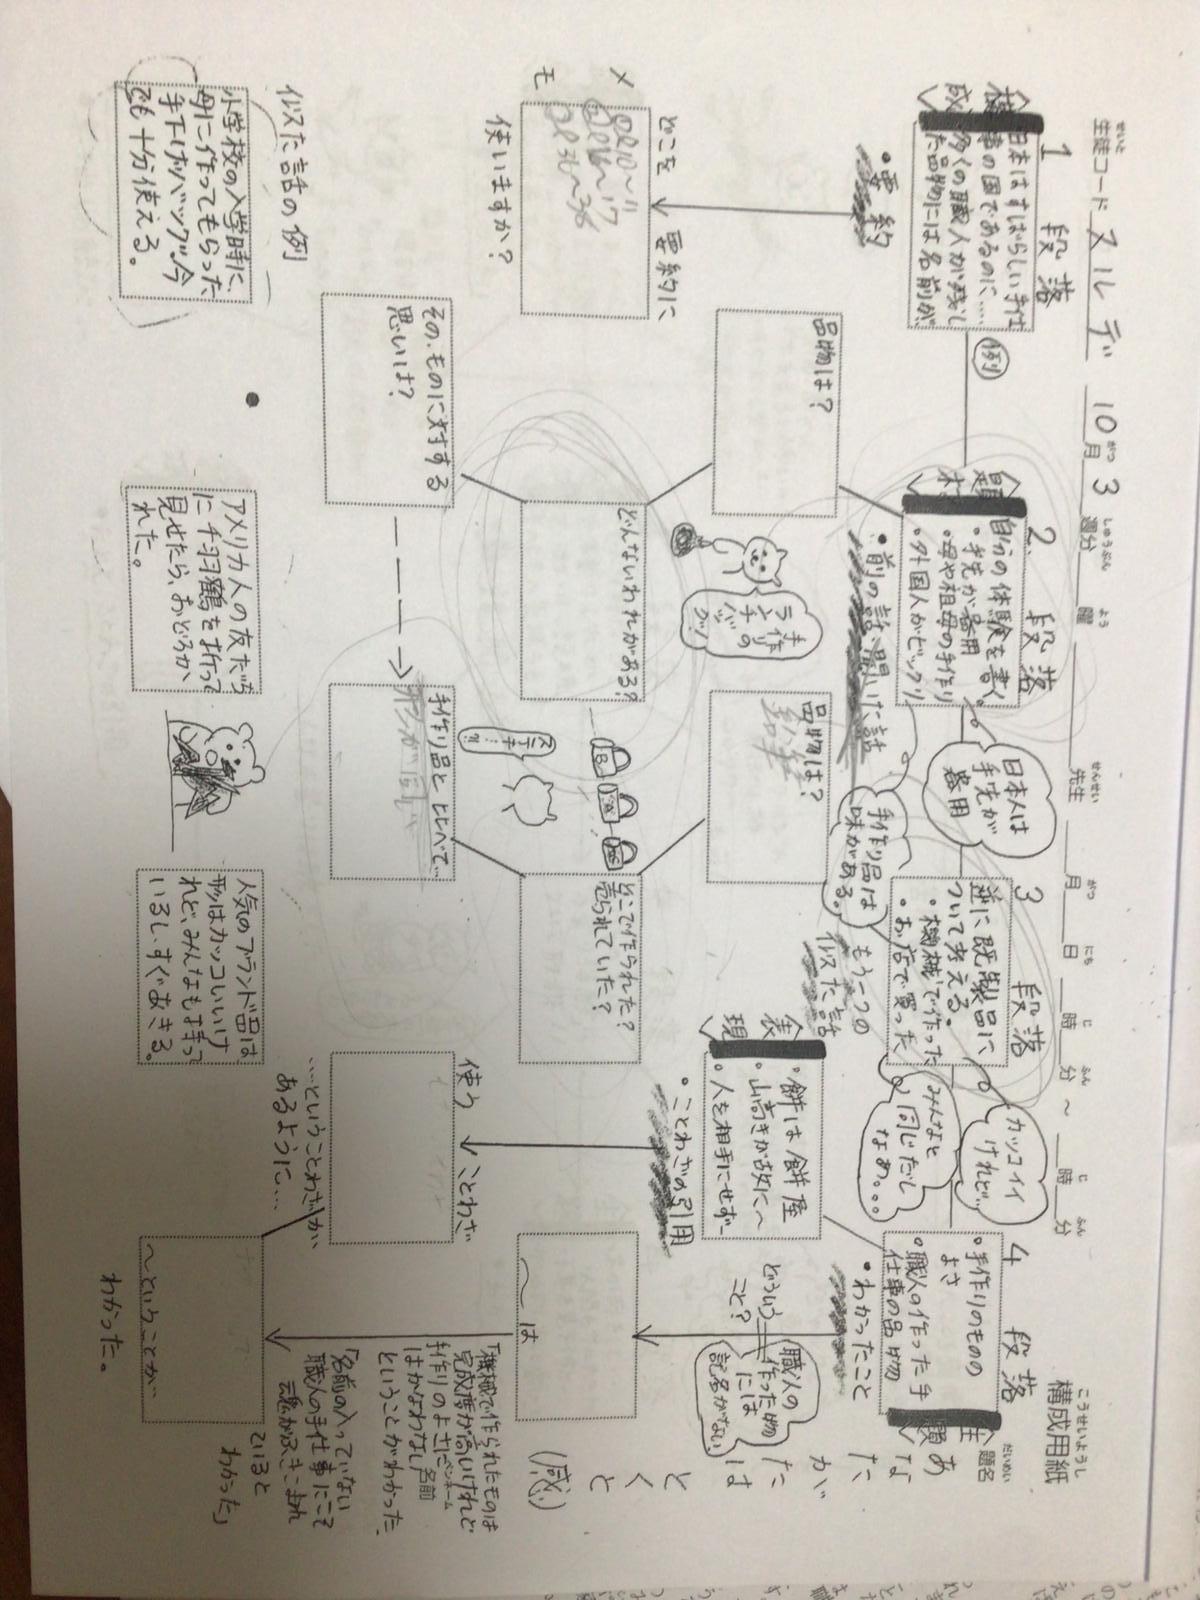 構成用紙
こうせいようし
題名
だいめい
生徒コード ヌルデ 10月3週分 曜 先生 月 日 時 分 ～ 時 分
せいと
がつ
しゅうぶん
よう
せんせい
がつ
にち
じ
ふん
じ
ふん
1 段落
日本はすばらしい手仕
事の国であるのに……
多くの職人が残し
た品物には名前が
・要約
どこを 要約に
使いますか?
メモ
例
2. 段落
題材
自分の体験を書く。
・手先が器用
・母や祖母の手作り
・外国人がビックリ
・前の話・聞いた話
日本人は
手先が
器用
手作り品は
味がある。
品物は?
どんないわれがある?
その、ものに対する
思いは?
手作りの
ランチ
バッグ!
3 段落
逆に既製品に
ついて考える。
・機械で作った
・お店で買った
もう一つの
似た話
カッコイイ
けれど…
みんなと
同じだし
なあ。。。
品物は?
どこで作られた?
売られていた?
手作り品とくらべて…
ステキ!
表現
・餅は餅屋
・山高きが故に～
・人を相手にせず～
・ことわざの引用
使う ことわざ
…ということわざが、
あるように…
4 段落
・手作りのものの
よさ
・職人の作った手
仕事の品物
・わかったこと
どういう
こと?
職人の
作った物
には
記名がない
～は
～ということが
わかった。
あなたがたはとくと
(感)
「機械で作られたものは
完成度が高いけれど
手作りのよさには
かなわない
ということがわかった。
「名前の入っていない
職人の手仕事にこそ
魂がふきこまれ
ていると
わかった」
似た話の例
小学校の入学時に、
母に作ってもらった
手下げバッグ。今
でも十分使える。
アメリカ人の友だち
に千羽鶴を折って
見せたら、おどろか
れた。
人気のブランド品は
形はカッコいいけ
れど、みんなもお持って
いるし、すぐあきる。